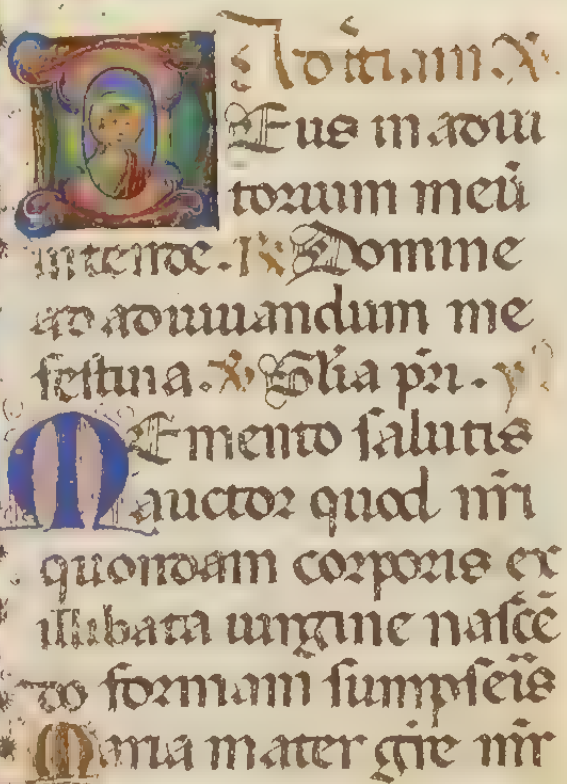 Ad t̄ciam ℣.
Deus in adiu
torium meū
intende. ℟ Domine
ad adiuuandum me
festina. ℣ Gl̄ia pr̄i. y
Memento salutis
auctor quod nr̄i
quondam corporis ex
illibata uirgine nascē
do formam sumpseris
Maria mater gr̄e mr̄